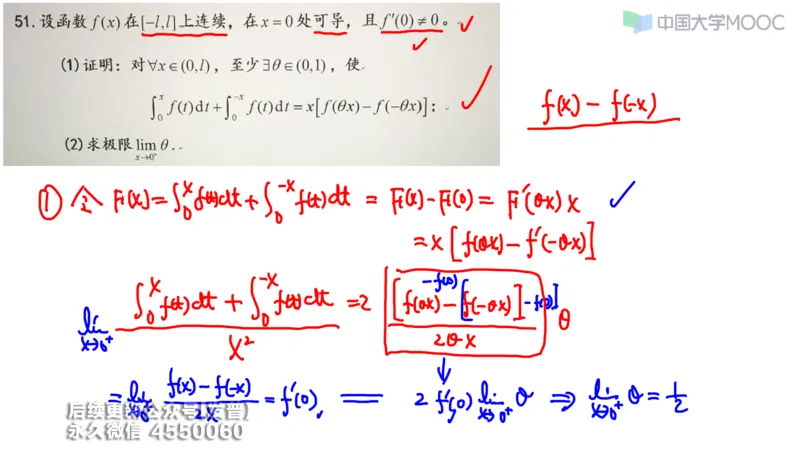 中国大学MOOC
51. 设函数 f(x) 在 [−l, l] 上连续，在 x = 0 处可导，且 f′(0) ≠ 0。
(1) 证明：对 ∀x ∈ (0, l)，至少 ∃θ ∈ (0,1)，使
∫₀ˣ f(t)dt + ∫₀⁻ˣ f(t)dt = x[f(θx) − f(−θx)]；
(2) 求极限 lim_{x→0⁺} θ.
f(x) − f(−x)
① 令 F(x) = ∫₀ˣ f(t)dt + ∫₀⁻ˣ f(t)dt = F(x) − F(0) = F′(θx) x
= x [f(θx) − f′(−θx)]
lim_{x→0⁺} (∫₀ˣ f(t)dt + ∫₀⁻ˣ f(t)dt) / x² = 2 ([f(θx) −f(0) − [f(−θx)] −f(0)]) / (2θx) θ
= lim_{x→0⁺} (f(x) − f(−x)) / (2x) = f′(0) = 2 f′(0) lim_{x→0⁺} θ ⇒ lim_{x→0⁺} θ = 1/2
永久微信 4550060